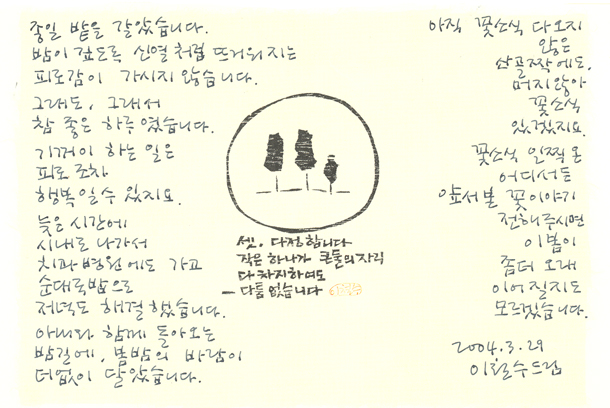 종일 밭을 갈았습니다.
밤이 깊도록 신열처럼 뜨거워지는
피로감이 가시지 않습니다.
그래도, 그래서
참 좋은 하루였습니다.
기꺼이 하는 일은
피로조차
행복일 수 있지요.
늦은 시간에
시내로 나가서
치과병원에도 가고
순대국밥으로
저녁도 해결했습니다.
아내와 함께 돌아오는
밤길에, 봄밤의 바람이
더없이 달았습니다.
셋, 다정합니다
작은 하나가 큰 둘의 자리
다 차지하여도
— 다툼 없습니다
아직 꽃소식 다 오지
않은
산골짝에도,
머지 않아
꽃소식
있겠지요.
꽃소식 일찍 온
어디서든
앞서 본 꽃이야기
전해주시면
이 봄이
좀더 오래
이어질지도
모르겠습니다.
2004.3.29
이철수드림